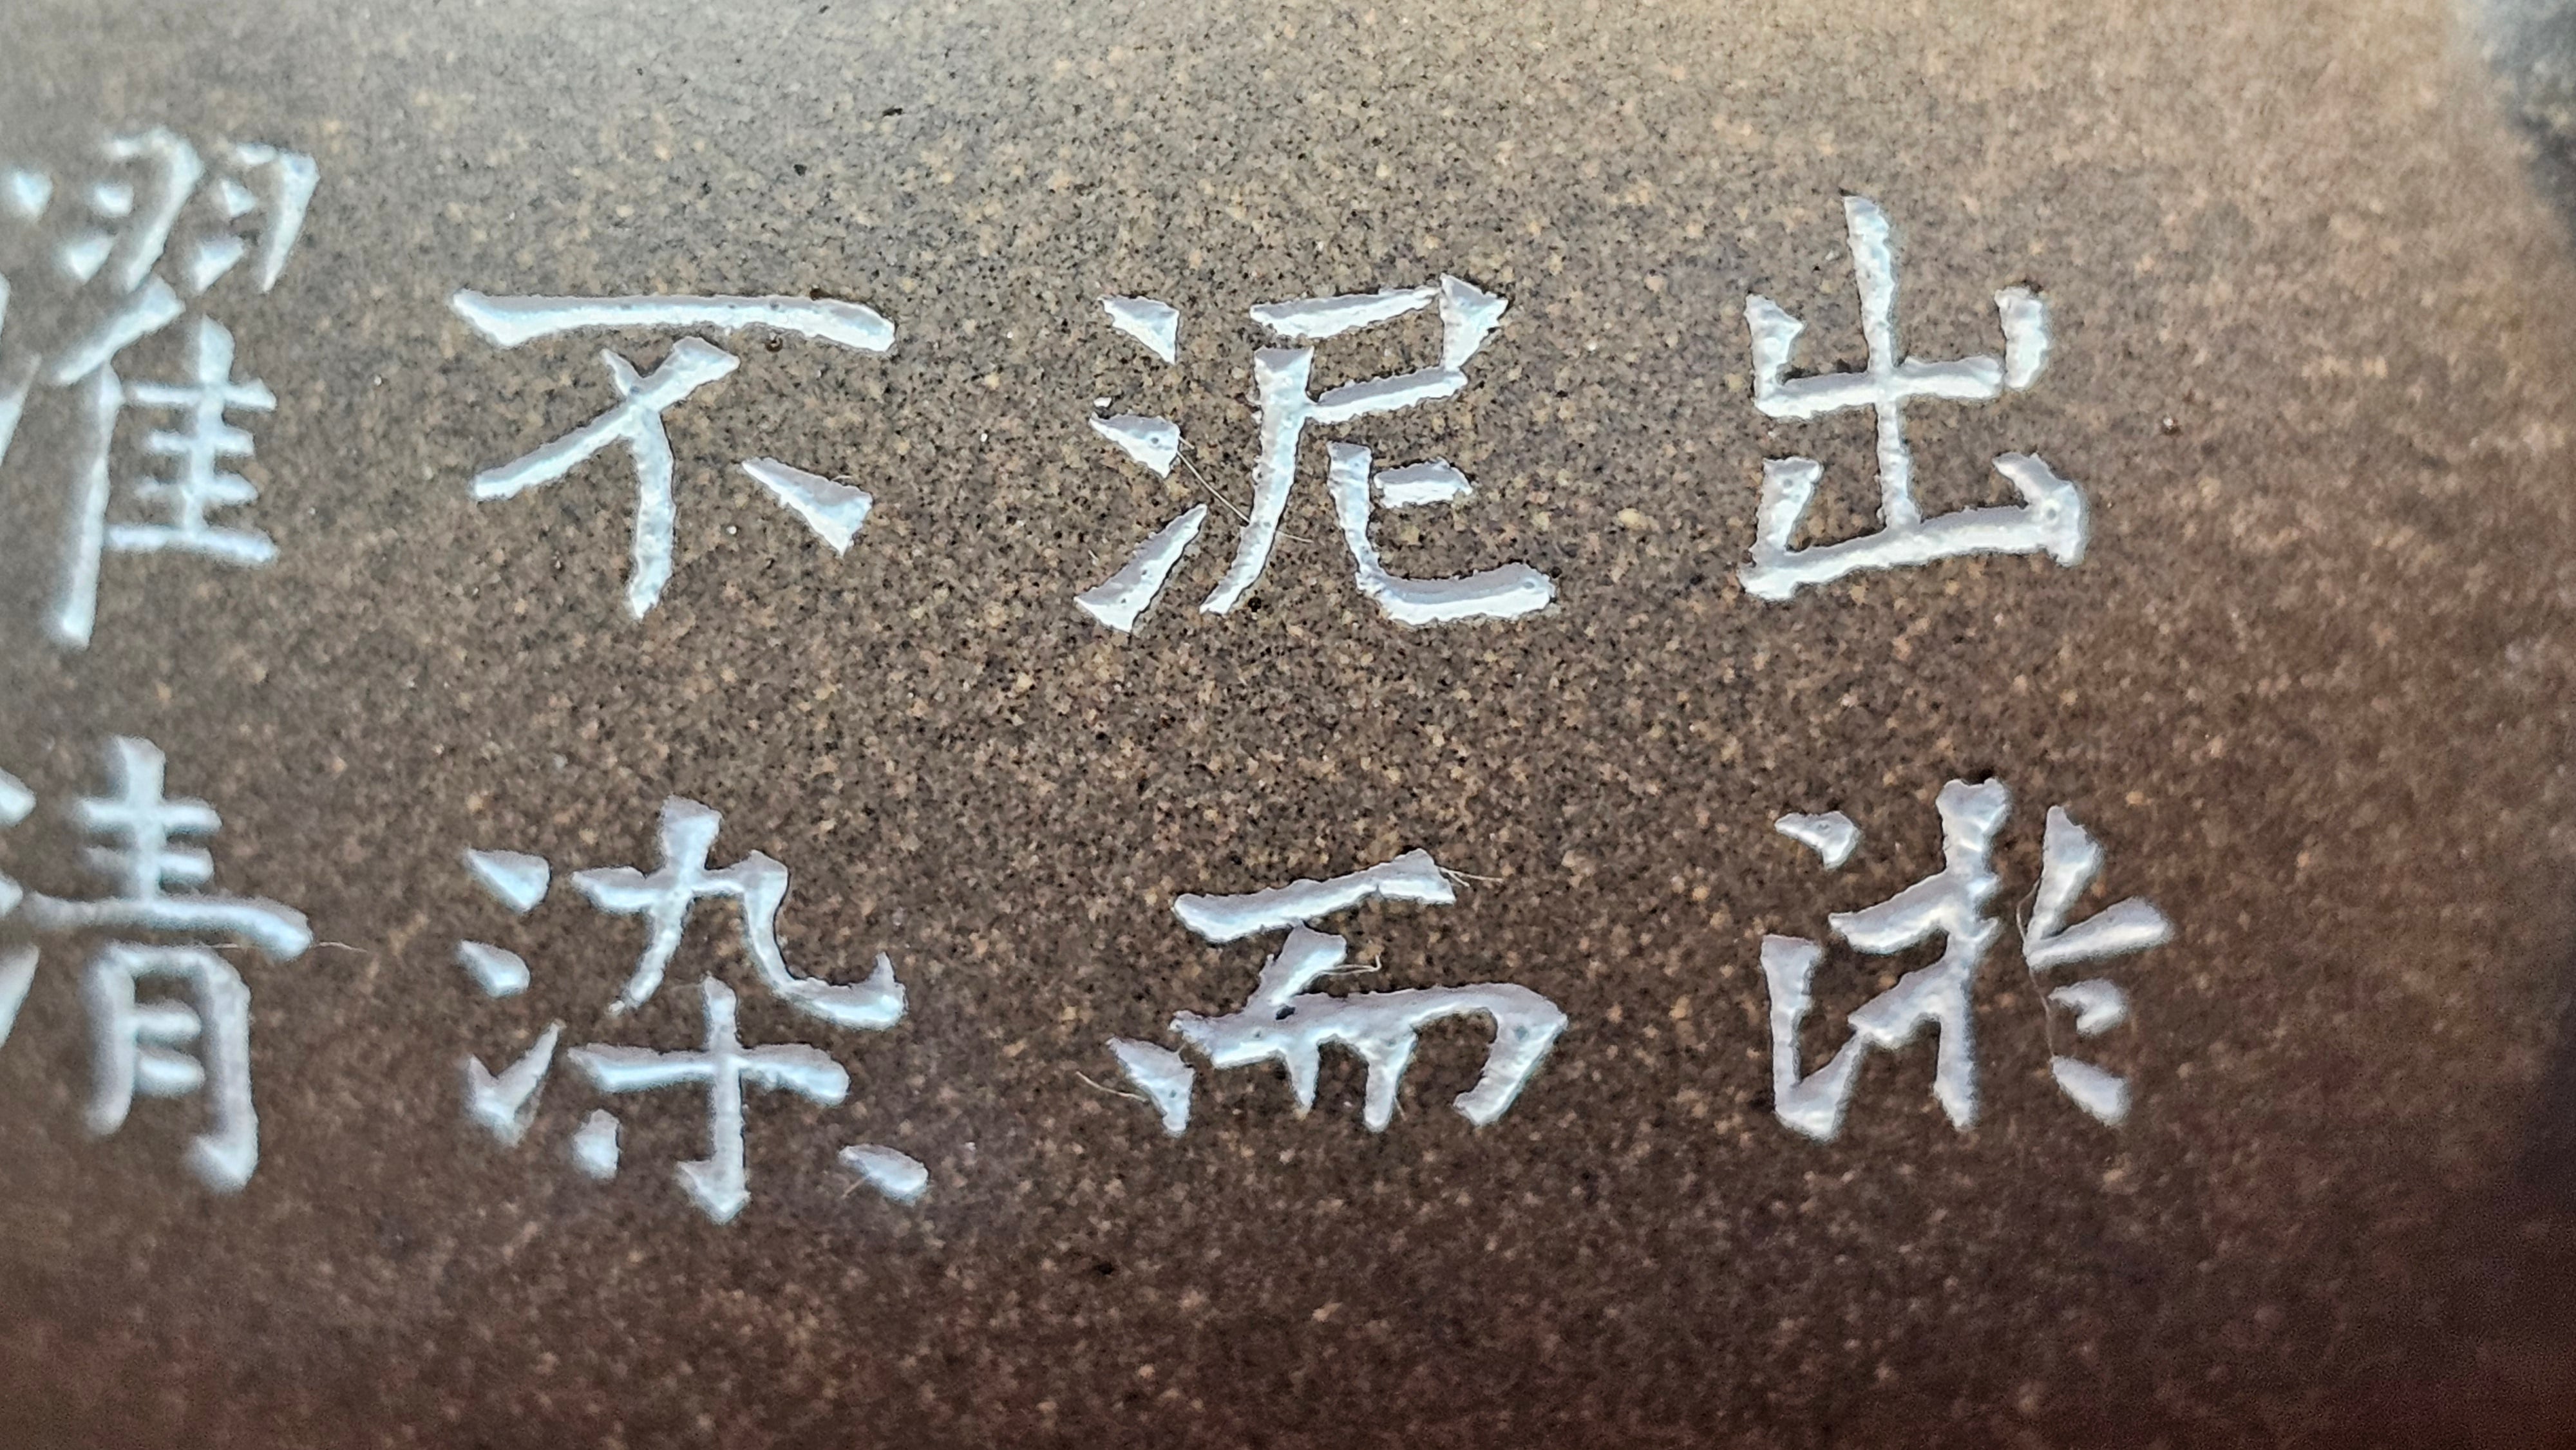 出淤
泥而
不染
濯清